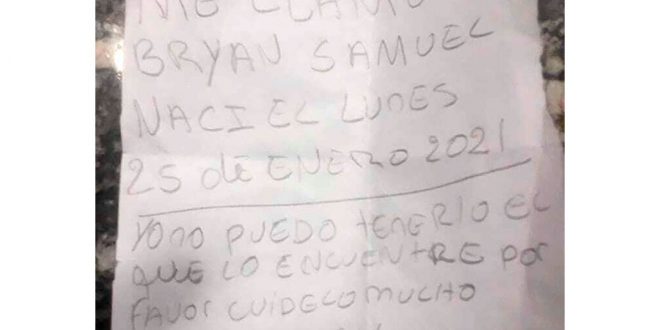 ME LLAMO
BRYAN SAMUEL
NACI EL LUNES
25 de ENERO 2021
YO no PUEDO tenerlo EL
QUE LO ENCUENTRE por
FAVOR CUIDELO MUCHO